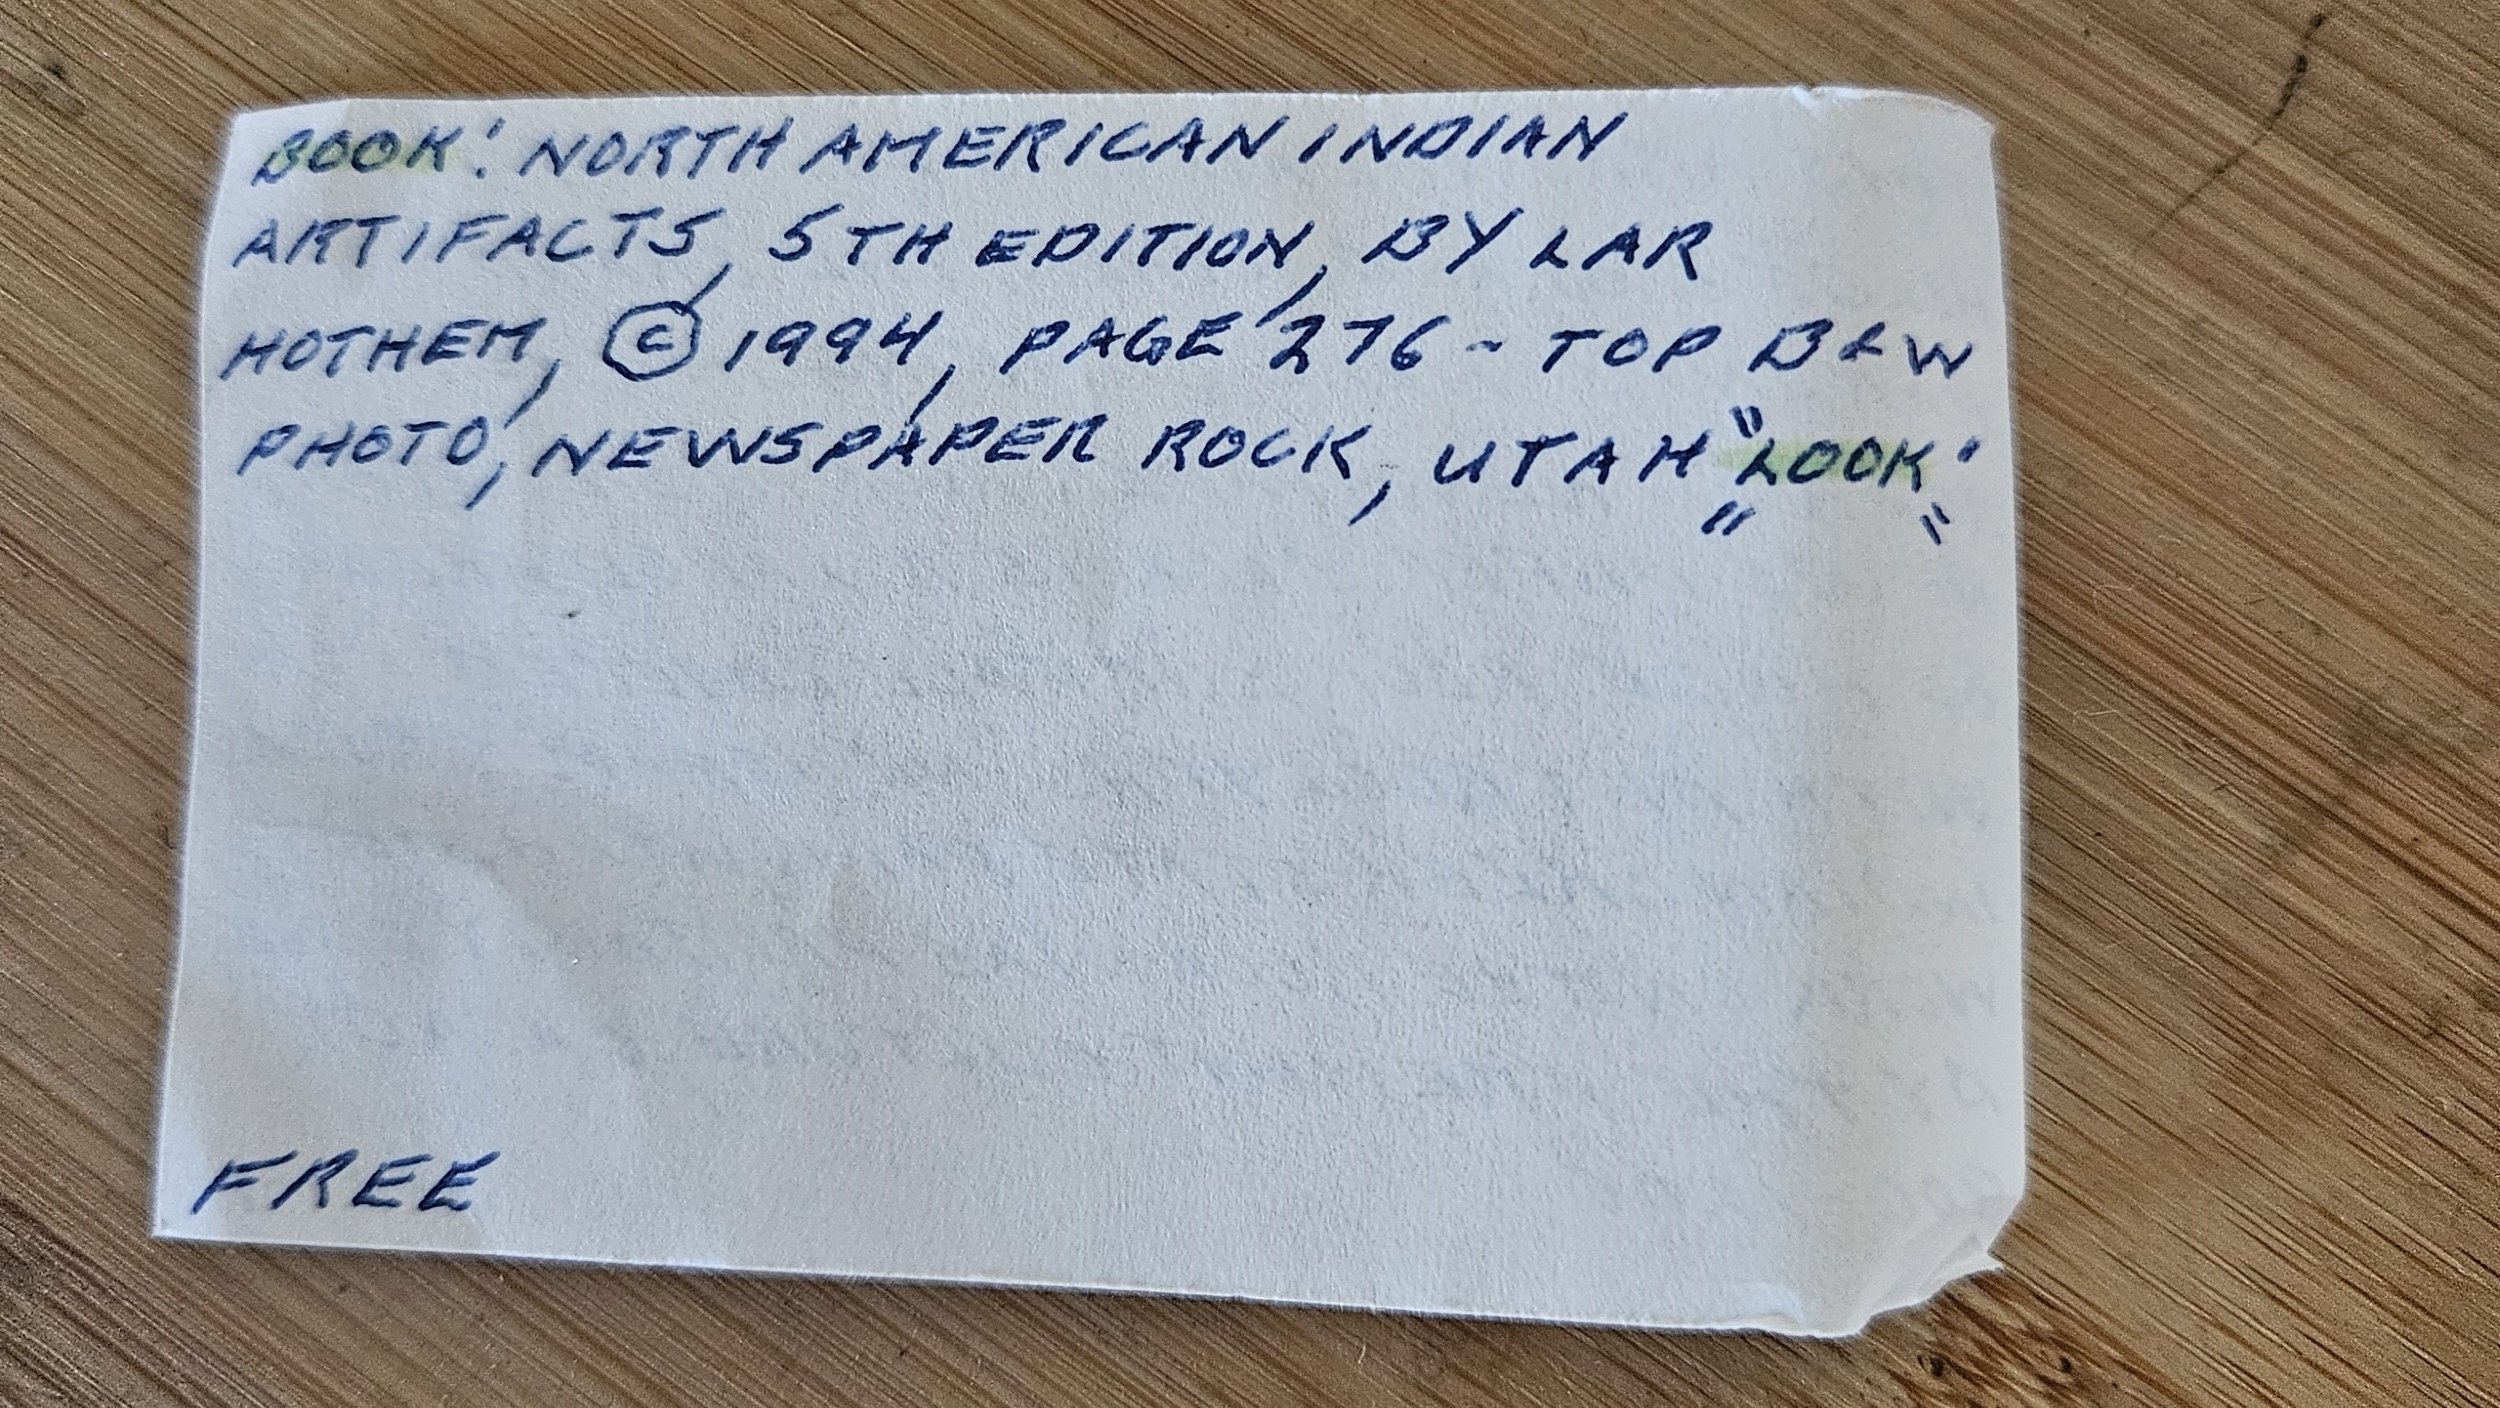 BOOK: NORTH AMERICAN INDIAN
ARTIFACTS, 5TH EDITION, BY LAR
HOTHEM, © 1994, PAGE 276 - TOP B&W
PHOTO, NEWSPAPER ROCK, UTAH "LOOK"
FREE